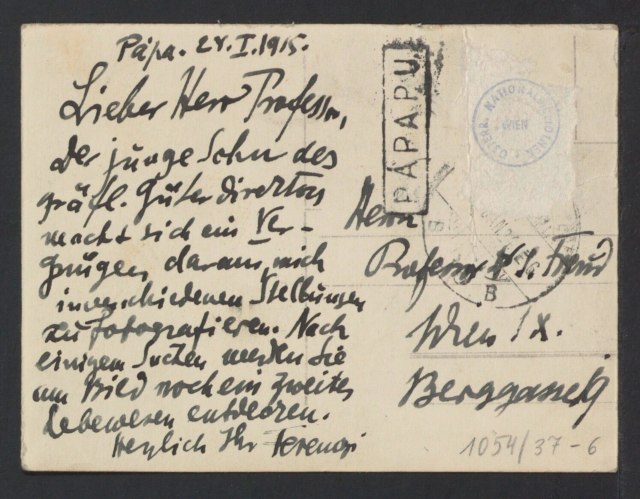 Pápa. 24.I.1915.
Lieber Herr Professor,
Der junge Sohn des
gräfl. Güterdirektors
macht sich ein Ver-
gnügen daraus, mich
in verschiedenen Stellungen
zu fotografieren. Nach
einigem Suchen werden Sie
am Bild noch ein zweites
Lebewesen entdecken.
Herzlich Ihr Ferenczi
PÁPAPU
ÖSTERR. NATIONALBIBLIOTHEK
WIEN
B
Herrn
Professor Dr S. Freud
Wien IX.
Berggasse 19
1054/37-6